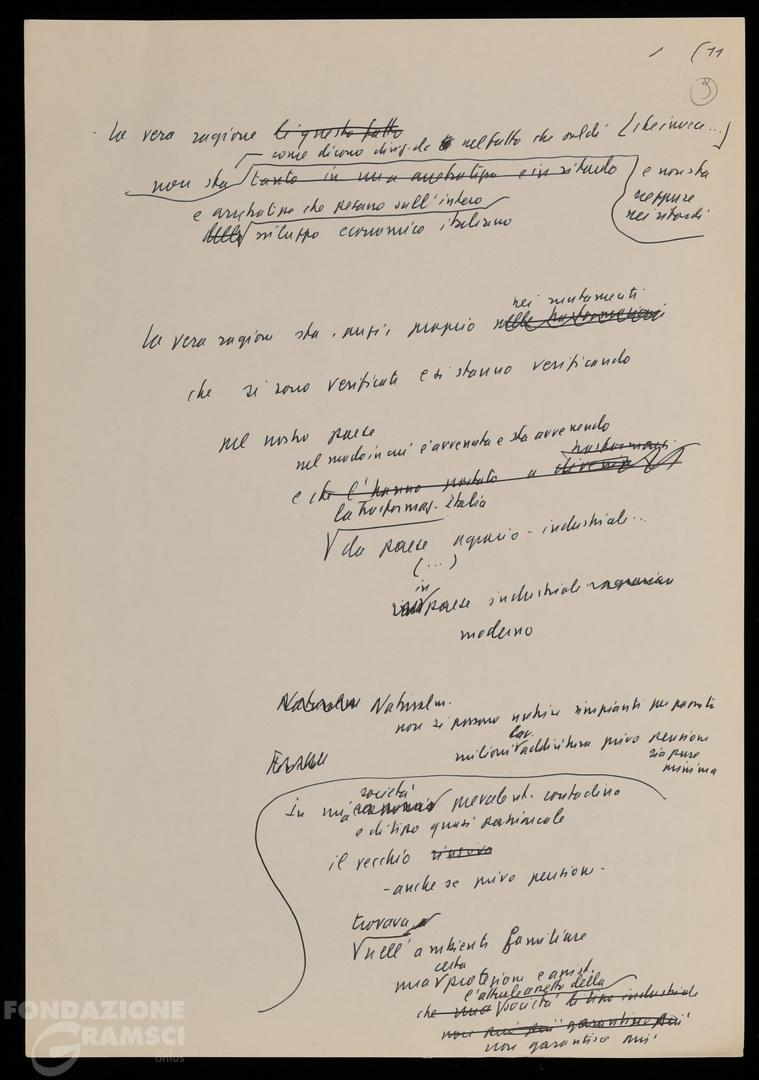 1 (11
9
La vera ragione di questo fatto
come dicono dirig. dc nel fatto che soldi (che invece...)
non sta tanto in una arretratezza e in ritardo e non sta
neppure
nei ritardi
e arretratezze che pesano sull'intero
dello sviluppo economico italiano
La vera ragione sta, anzi, proprio nei mutamenti
nelle trasformazioni
che si sono verificati e si stanno verificando
nel nostro paese
nel modo in cui è avvenuta e sta avvenendo
e che l'hanno portato a
la trasformaz. Italia
da paese agrario-industriale...
(...)
in
paese industriale
moderno
Naturalm.
non si possono nutrire rimpianti per passato
milioni lav. addirittura privo pensione
sia pure
minima
In una società prevalent. contadina
e di tipo quasi patriarcale
il vecchio
- anche se privo pensione -
trovava
nell'ambiente familiare
una certa protezione e assist.
che l'attuale assetto della
una società di tipo industriale
non più garantisce più
non garantisce più